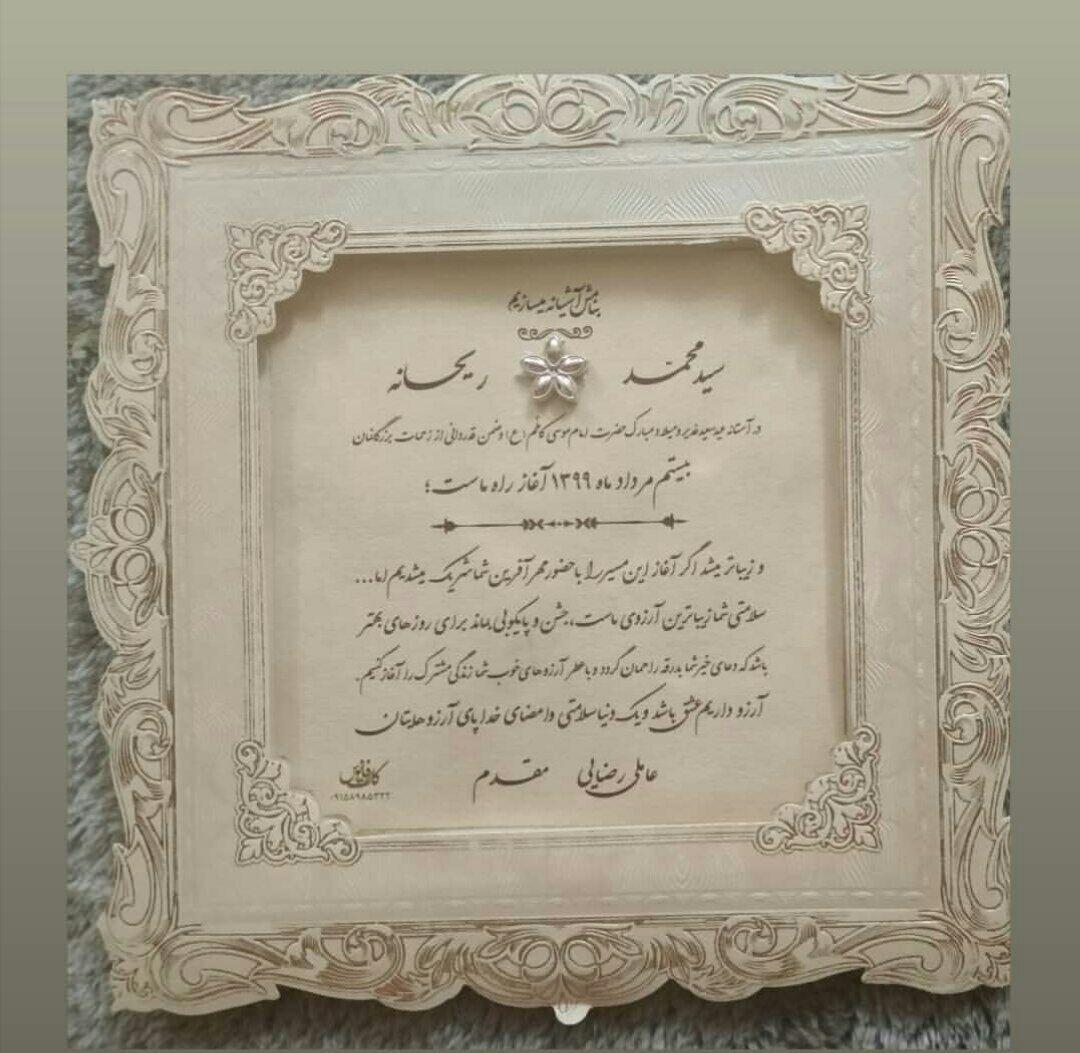 بنامش آشیانه میسازیم
سید محمد ریحانه
در آستانه عید سعید غدیر و میلاد مبارک حضرت امام موسی کاظم (ع) و ضمن قدردانی از زحمات بزرگانمان
بیستم مرداد ماه ۱۳۹۹ آغاز راه ماست؛
و زیباتر میشد اگر آغاز این مسیر را با حضور مهر آفرین شما شریک میشدیم اما...
سلامتی شما زیباترین آرزوی ماست، جشن و پایکوبی بماند برای روزهای بهتر
باشد که دعای خیر شما بدرقه راهمان گردد و با عطر آرزوهای خوب شما زندگی مشترک را آغاز کنیم.
آرزو داریم عشق باشد و یک دنیا سلامتی و امضای خدا پای آرزوهایتان
عاملی رضایی مقدم
کارت فانوس
۰۹۱۵۸۹۸۵۳۲۲